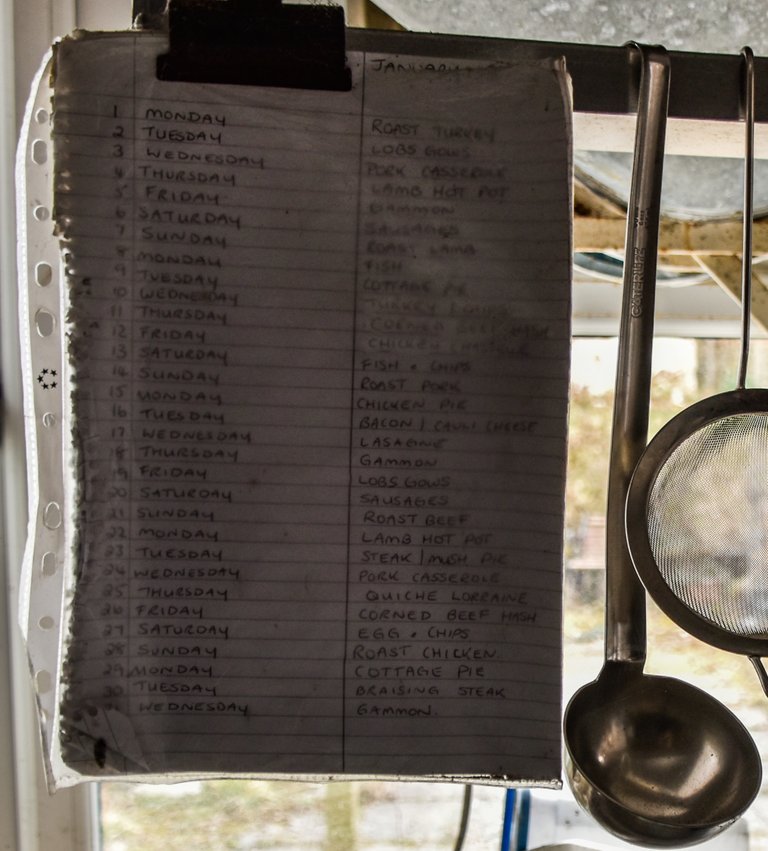 JANUARY
1 MONDAY ROAST TURKEY
2 TUESDAY LOBS GOWS
3 WEDNESDAY PORK CASSEROLE
4 THURSDAY LAMB HOT POT
5 FRIDAY GAMMON
6 SATURDAY SAUSAGES
7 SUNDAY ROAST LAMB
8 MONDAY FISH
9 TUESDAY COTTAGE PIE
10 WEDNESDAY TURKEY
11 THURSDAY CORNED BEEF HASH
12 FRIDAY CHICKEN
13 SATURDAY FISH + CHIPS
14 SUNDAY ROAST PORK
15 MONDAY CHICKEN PIE
16 TUESDAY BACON / CAULI CHEESE
17 WEDNESDAY LASAGNE
18 THURSDAY GAMMON
19 FRIDAY LOBS GOWS
20 SATURDAY SAUSAGES
21 SUNDAY ROAST BEEF
22 MONDAY LAMB HOT POT
23 TUESDAY STEAK / MUSH PIE
24 WEDNESDAY PORK CASSEROLE
25 THURSDAY QUICHE LORRAINE
26 FRIDAY CORNED BEEF HASH
27 SATURDAY EGG + CHIPS
28 SUNDAY ROAST CHICKEN.
29 MONDAY COTTAGE PIE
30 TUESDAY BRAISING STEAK
31 WEDNESDAY GAMMON.